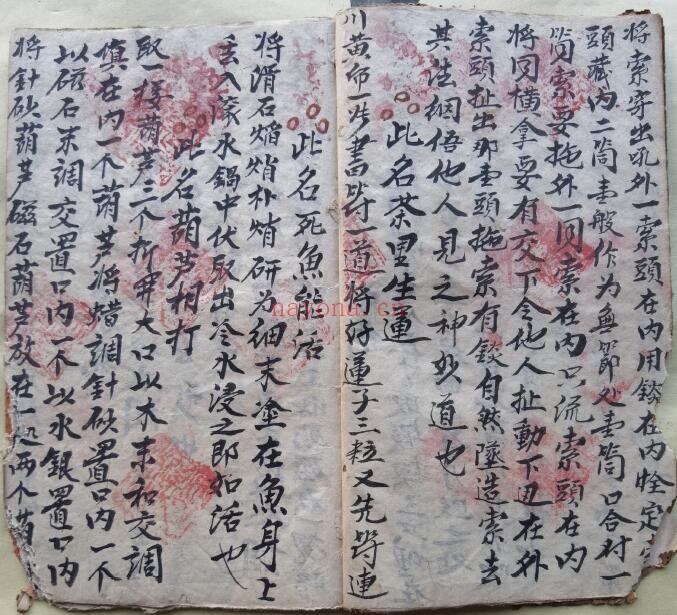 将索穿出吼外一索頭在内用錢在内栓定
頭藏内二筒壹般作为無節处壹筒口合对一
筒索要拖外一同索在内只流索頭在内
将同横拿要有交下令他人扯動下边在外
索頭扯出那壹頭拖索有錢自然墜造索去
其送綑俉他人見之神妙道也
此名茶里生蓮
川黄布一片書符一道将好蓮子三粒又先符連
此名死魚能活
将滑石焰焇朴焇研为細末塗在魚身上
丟入滚水鍋中伏取出冷水浸之即如活也
此名葫芦相打
取一接葫芦三个折開大口以木末和交調
填在内一个葫芦将焟調針砂置口内一个
以磁石末調交置口内一个以水銀置口内
将針砂葫芦磁石葫芦放在一処两个葫
nayona.cn